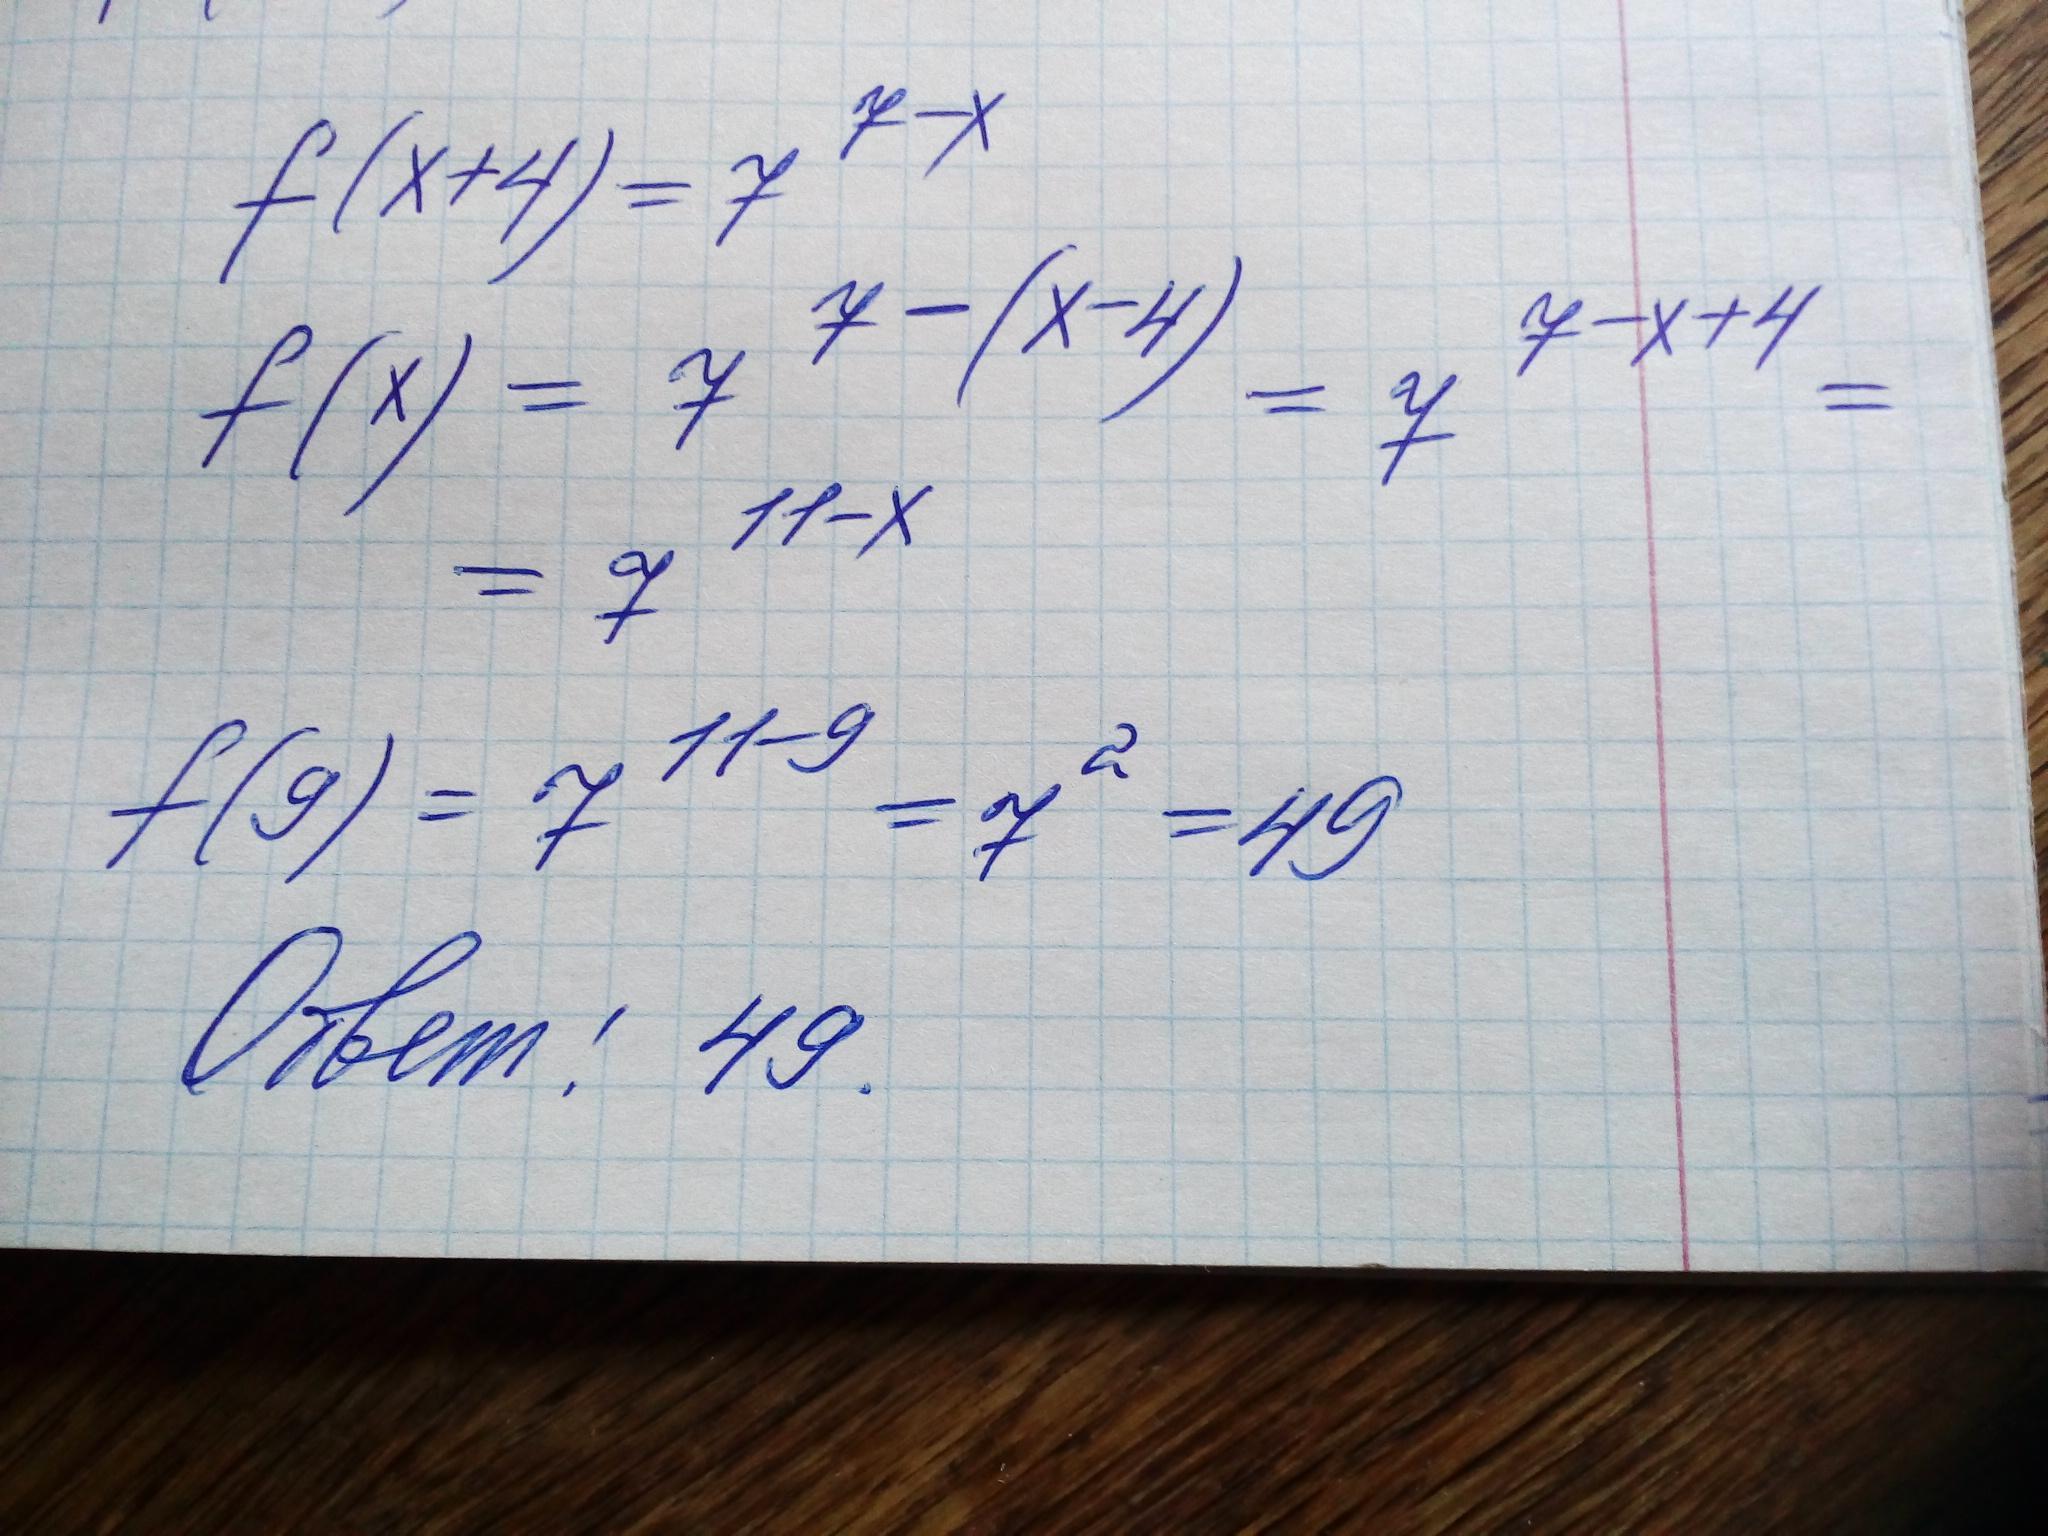 f(x+4) = 7^{7-x}
f(x) = 7^{7-(x-4)} = 7^{7-x+4} =
= 7^{11-x}
f(9) = 7^{11-9} = 7^2 = 49
Ответ: 49.